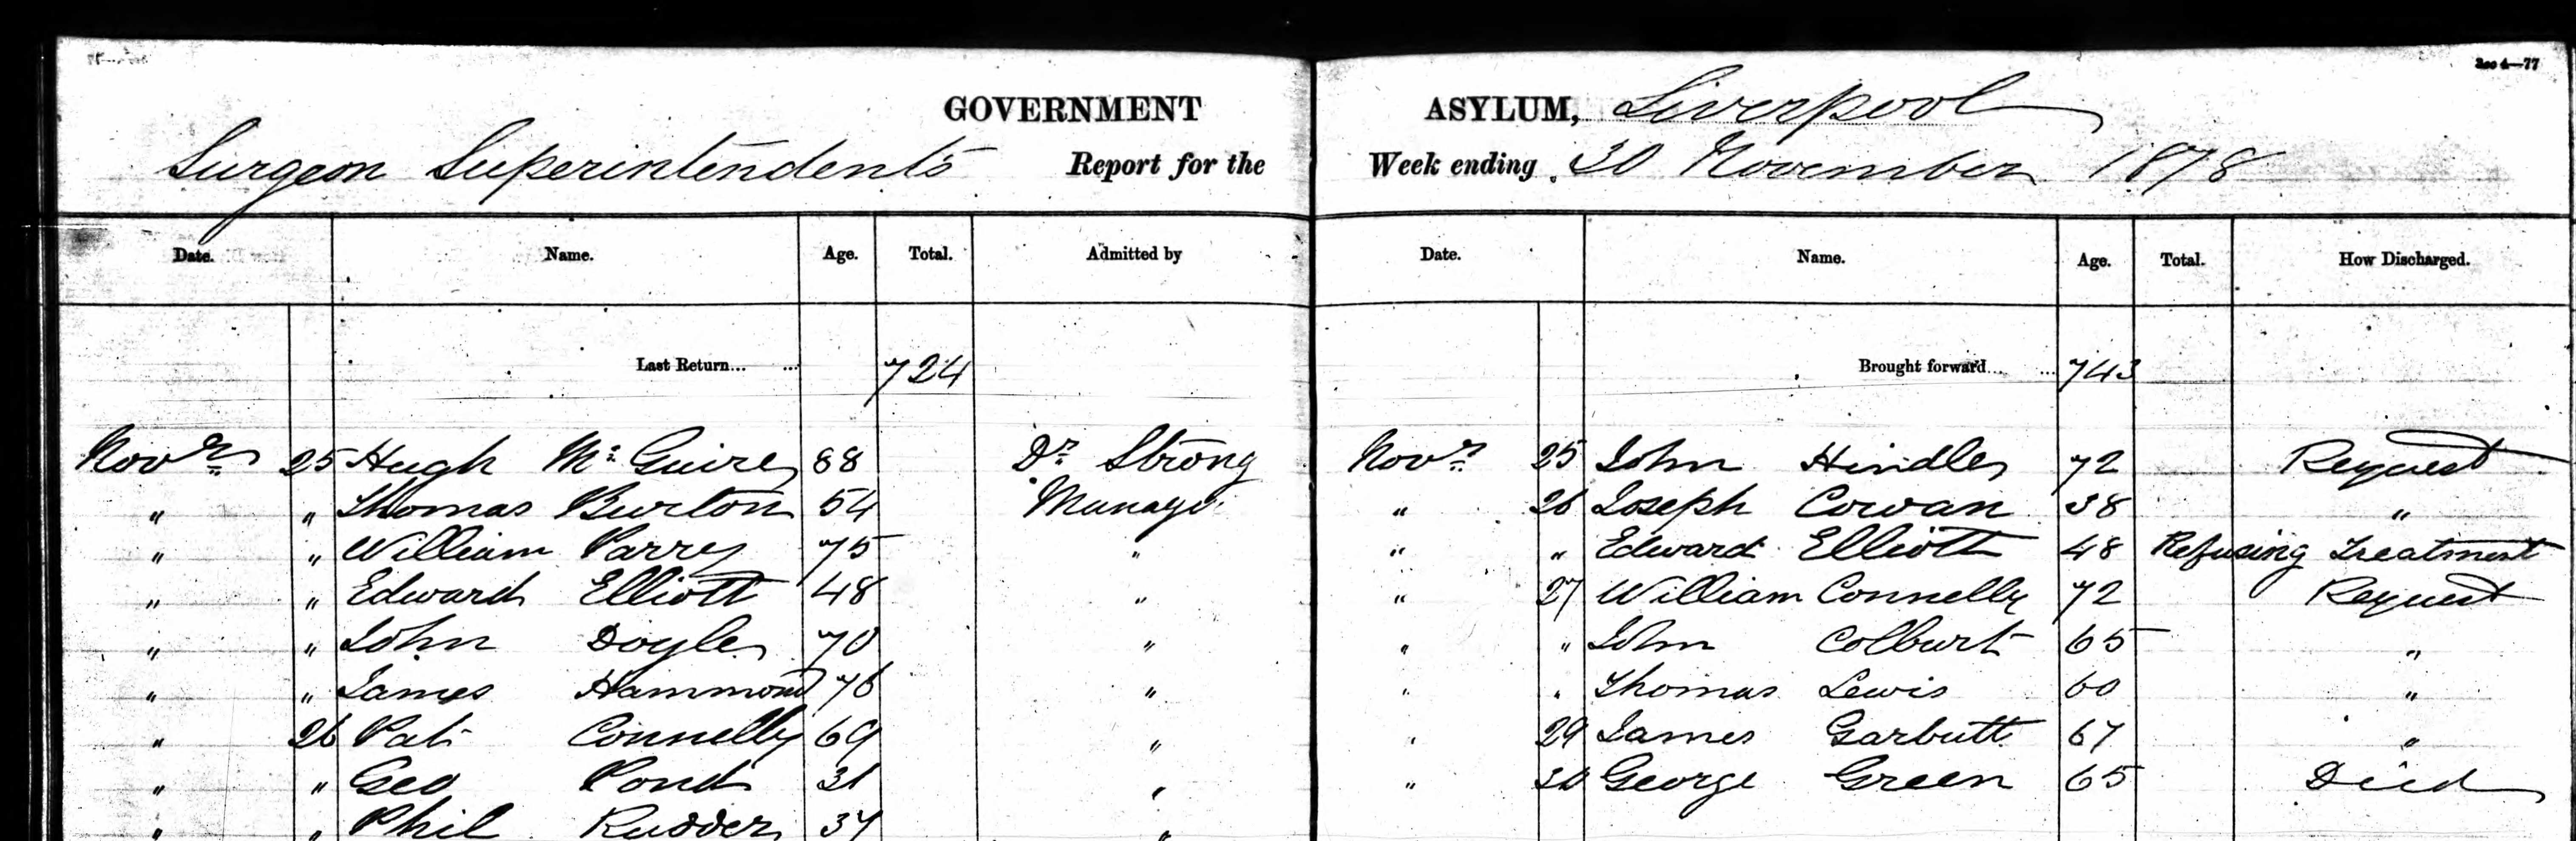 GOVERNMENT ASYLUM, Liverpool
Surgeon Superintendents Report for the Week ending 30 November 1878
Date. Name. Age. Total. Admitted by Date. Name. Age. Total. How Discharged.
Last Return... ... 724 Brought forward... ... 743
Novr 25 Hugh Mc Guire 88 Dr Strong Novr 25 John Hindle 72 Request
" " Thomas Burton 54 Manager " 26 Joseph Cowan 38 "
" " William Parry 75 " " " Edward Elliott 48 Refusing Treatment
" " Edward Elliott 48 " " 27 William Connelly 72 Request
" " John Doyle 70 " " " John Colburt 65 "
" " James Hammond 76 " " " Thomas Lewis 60 "
" 26 Pat Connelly 69 " " 29 James Garbutt 67 "
" " Geo Pond 31 " " 30 George Green 65 Died
" " Phil Rudder 37 "